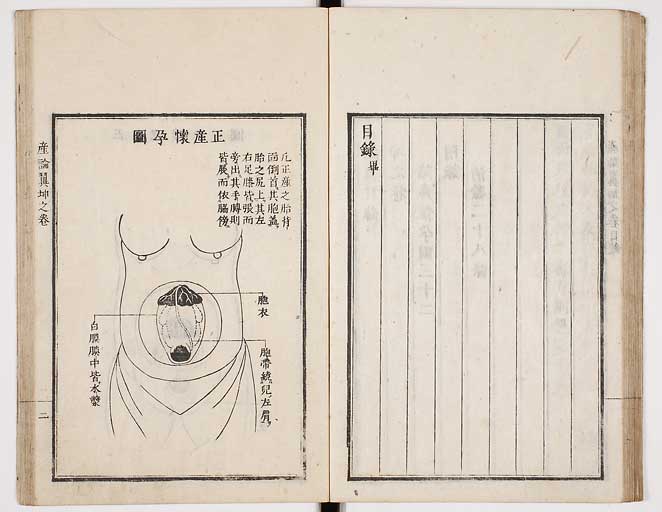 目錄畢
産論翼坤之卷
二
正産懷孕圖
凡正産之胎背
面倒首其胞蓋
胎之尻上其左
右足膝皆張而
旁出其手膊則
皆展而依腦傍
胞衣
胞帶繞兒左肩
白膜膜中皆水漿